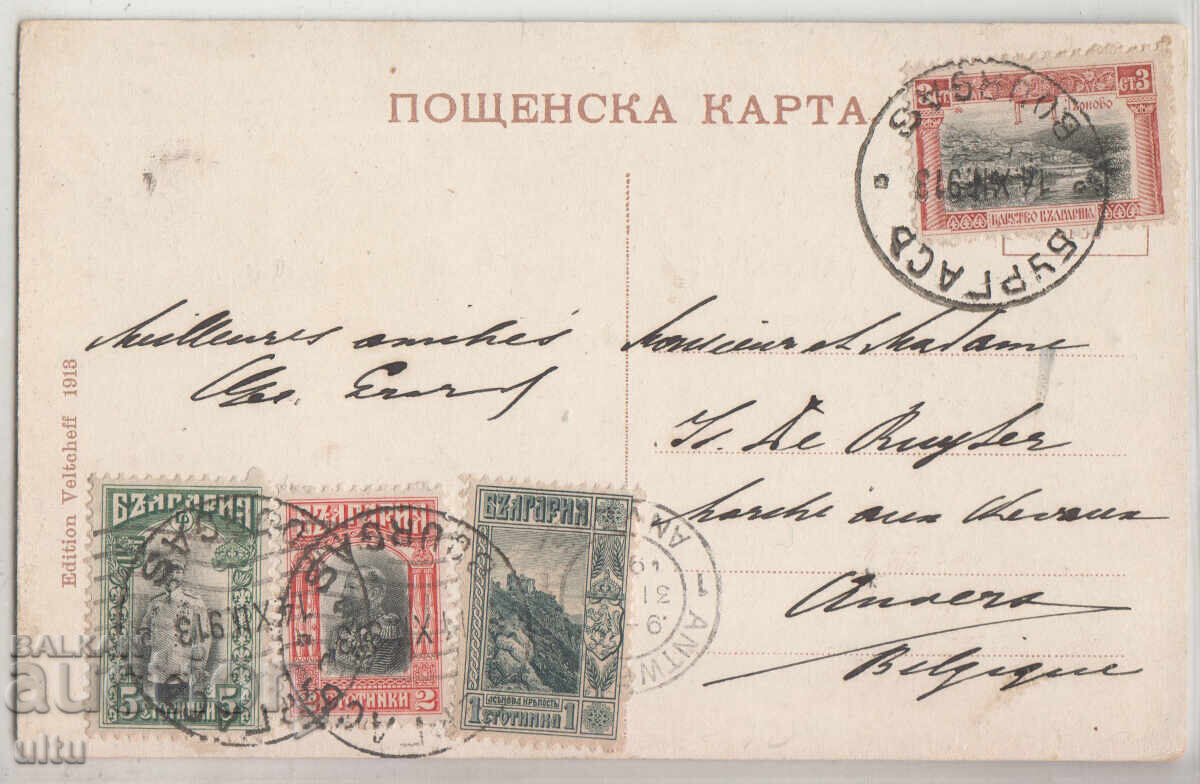 ПОЩЕНСКА КАРТА
3 СТ3
Търново
ЦАРСТВО БЪЛГАРИЯ
BURGAS
14 XII 913
БУРГАСЪ
Meilleures amitiés
Monsieur et Madame
De Ruyter
Marché aux Chevaux
Anvers
Belgique
Edition Veltcheff 1913
БЪЛГАРИЯ
5 СТОТИНКИ 5
БЪЛГАРИЯ
СТОТИНКИ 2
БЪЛГАРИЯ
АСѢНОВА КРѢПОСТЬ
1 СТОТИНКА 1
BURGAS
14 XII 913
BURGAS
ANTW
BALKAN
au
ultu